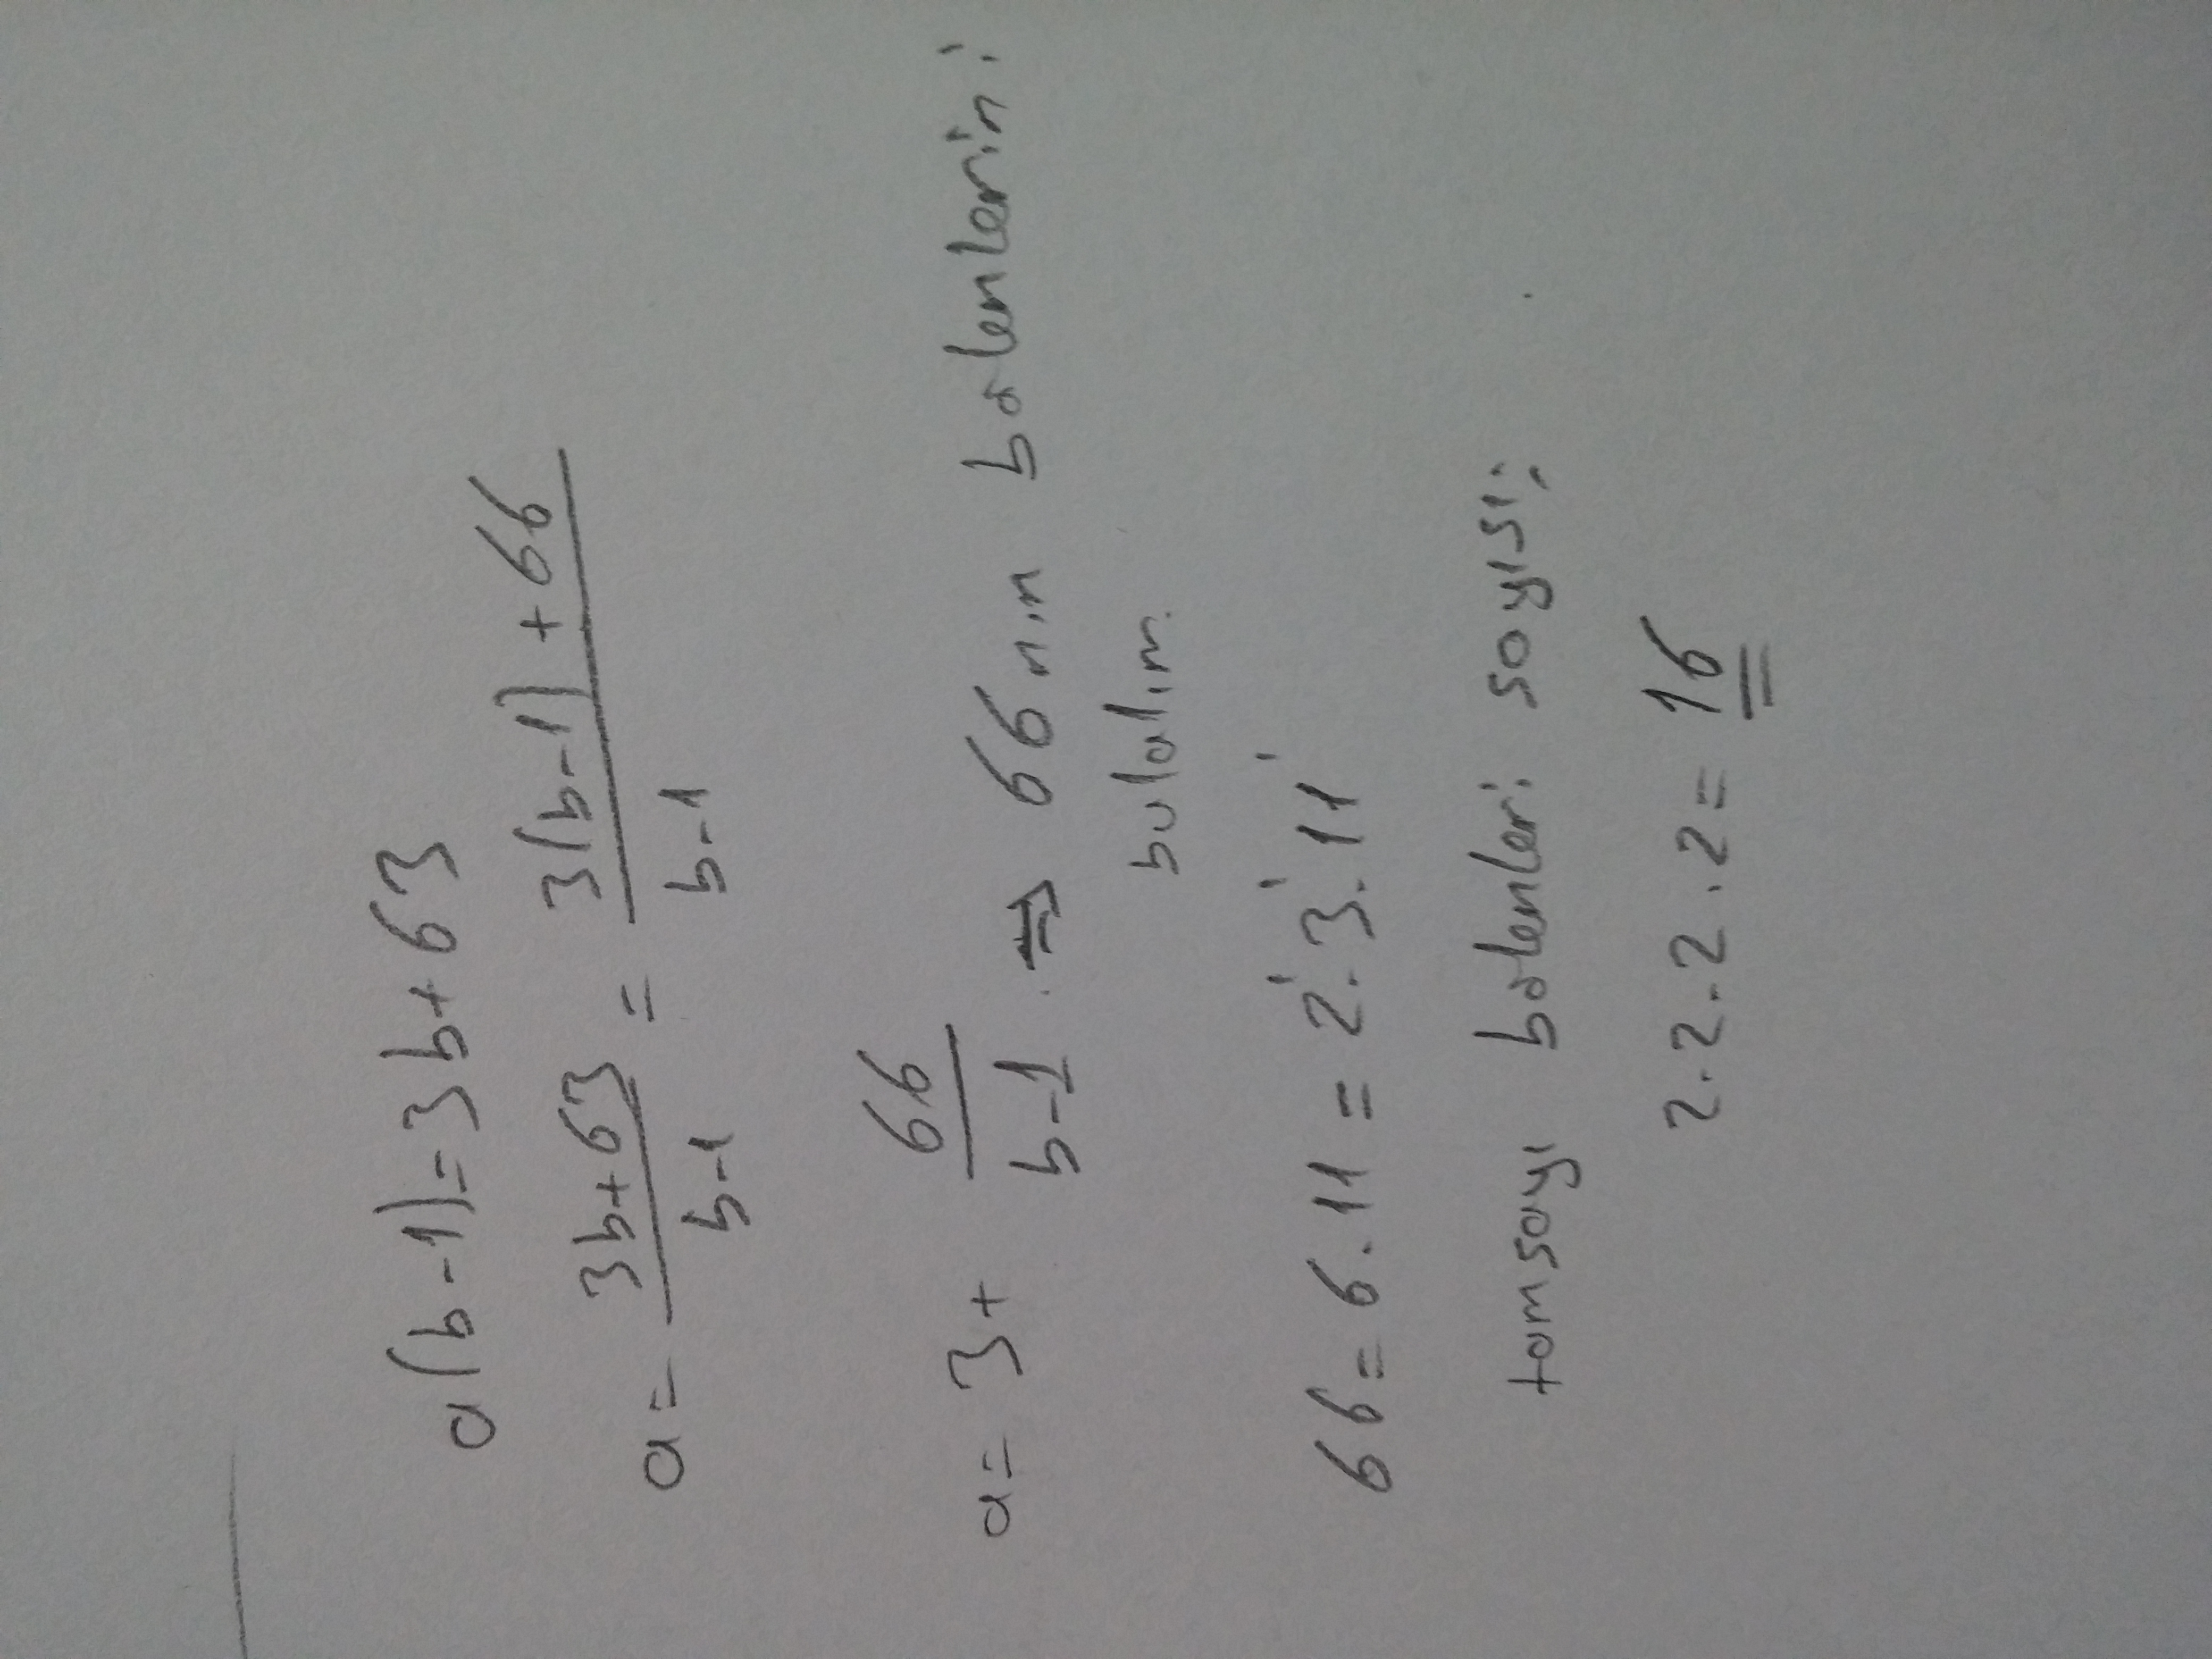 a(b-1)=3b+63
a = \frac{3b+63}{b-1} = \frac{3(b-1)+66}{b-1}
a = 3 + \frac{66}{b-1} ⇒ 66 nın bölenlerini
bulalım.
66 = 6.11 = 2¹.3¹.11¹
tamsayı bölenleri sayısı;
2.2.2.2 = 16